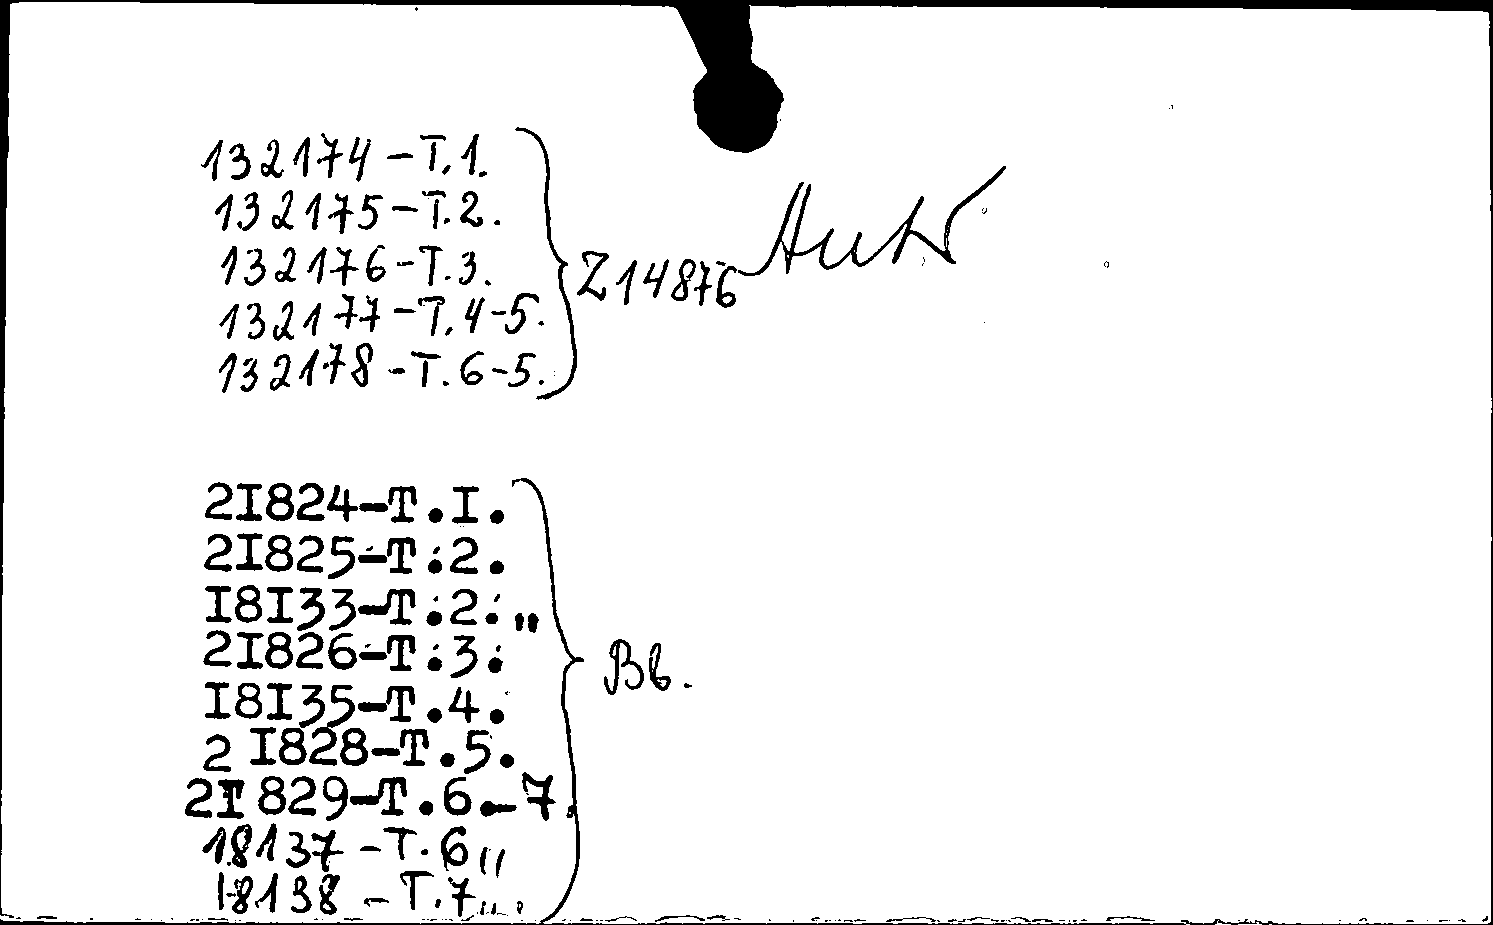 132174-T.1.
132175-T.2.
132176-T.3.
132177-T.4-5.
132178-T.6-5.
Z14876
2I824-T.I.
2I825-T.2.
I8I33-T.2."
2I826-T.3.
I8I35-T.4.
2 I828-T.5.
2I829-T.6.-7.
18137-T.6"
18138-T.7"
Вб.